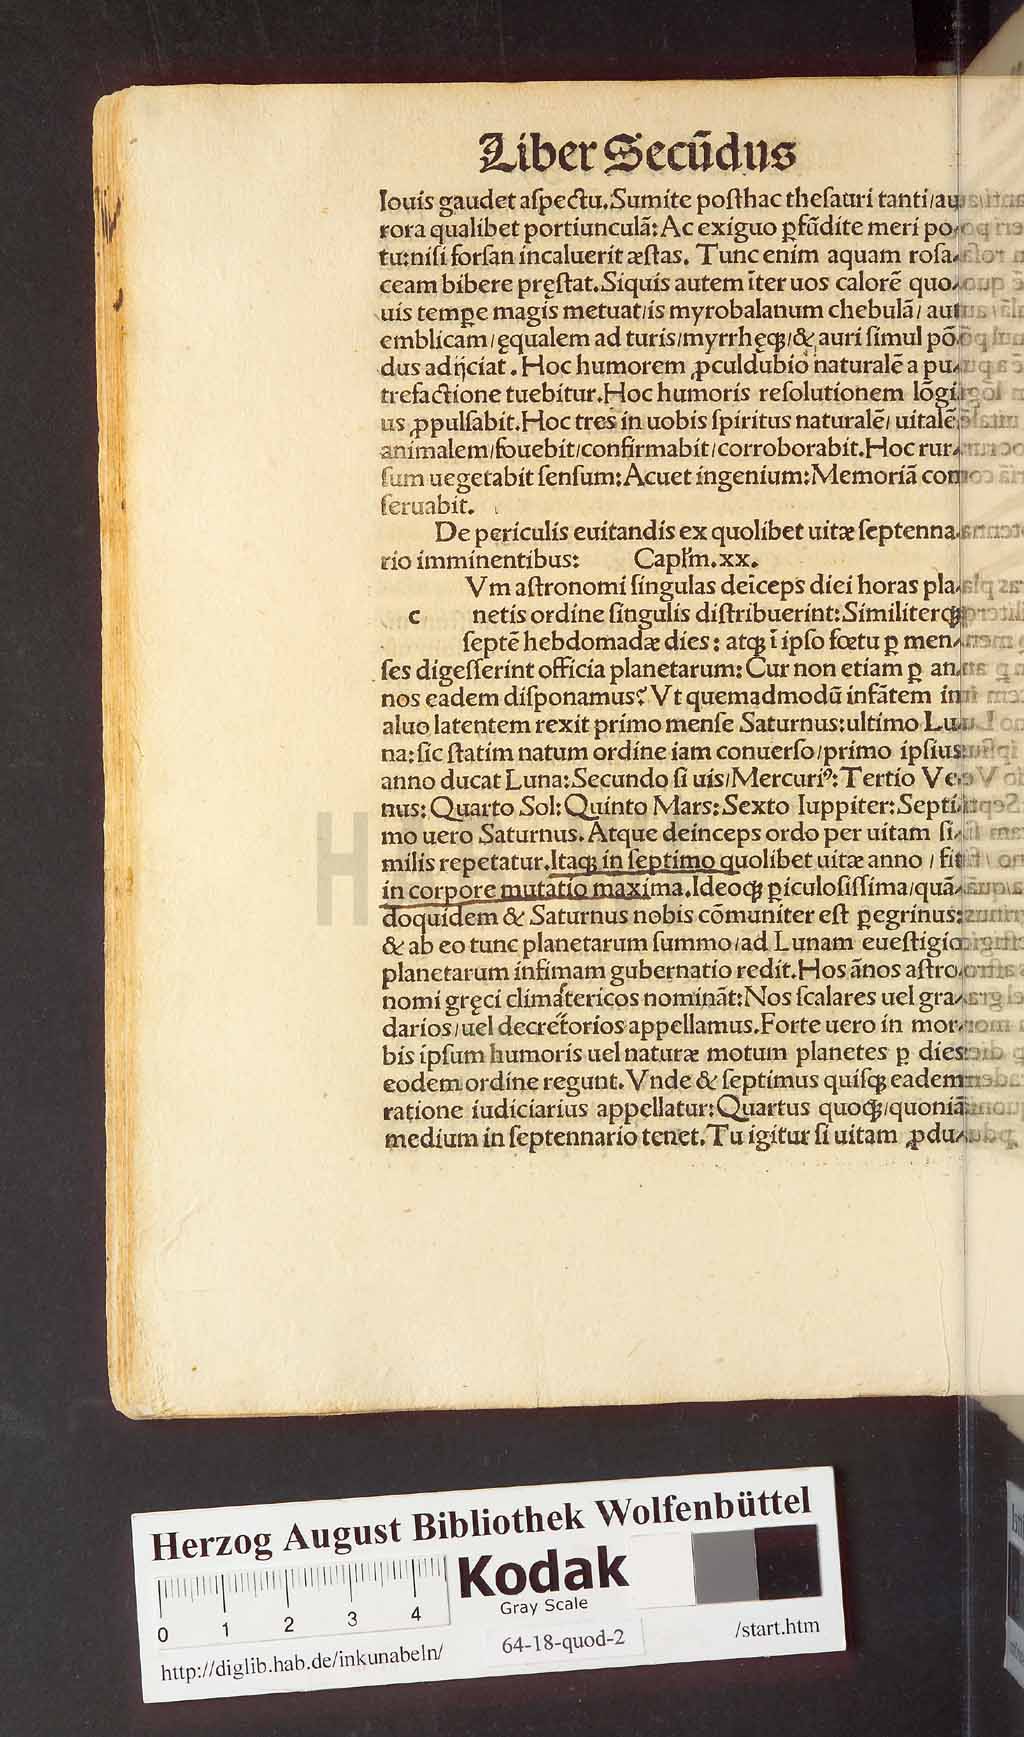 Liber Secūdus
Iouis gaudet aſpectu. Sumite poſthac theſauri tanti/au
rora qualibet portiunculā: Ac exiguo ꝑfūdite meri po⸗
tu: niſi forſan incaluerit æſtas. Tunc enim aquam roſa⸗
ceam bibere pręſtat. Siquis autem īter uos calorē quo⸗
uis tempe magis metuat/is myrobalanum chebulā/ aut
emblicam/ęqualem ad turis/myrrhęqꝫ/& auri ſimul pō
dus adijciat. Hoc humorem ꝓculdubio naturalē a pu⸗
trefactione tuebitur. Hoc humoris reſolutionem lōgi
us ꝓpulſabit. Hoc tres in uobis ſpiritus naturalē/ uitalē
animalem/fouebit/confirmabit/corroborabit. Hoc rur⸗
ſum uegetabit ſenſum: Acuet ingenium: Memoriā con
ſeruabit.
De periculis euitandis ex quolibet uitæ ſeptenna⸗
rio imminentibus: Caplm. xx.
Vm aſtronomi ſingulas deīceps diei horas pla⸗
c netis ordine ſingulis diſtribuerint: Similiterqꝫ
ſeptē hebdomadæ dies: atqꝫ ī ipſo fœtu ꝑ men⸗
ſes digeſſerint officia planetarum: Cur non etiam ꝑ an
nos eadem diſponamus? Vt quemadmodū infātem in
aluo latentem rexit primo menſe Saturnus: ultimo Lu
na: ſic ſtatim natum ordine iam conuerſo/primo ipſius
anno ducat Luna: Secundo ſi uis/Mercuriꝰ: Tertio Ve
nus: Quarto Sol: Quinto Mars: Sexto Iuppiter: Septi
mo uero Saturnus. Atque deinceps ordo per uitam ſi⸗
milis repetatur. Itaqꝫ in ſeptimo quolibet uitæ anno / fit
in corpore mutatio maxima. Ideoqꝫ ꝑiculoſiſſima/quā⸗
doquidem & Saturnus nobis cōmuniter eſt ꝑegrinus:
& ab eo tunc planetarum ſummo/ad Lunam eueſtigio
planetarum infimam gubernatio redit. Hos ānos aſtro
nomi gręci climatericos nomināt: Nos ſcalares uel gra⸗
darios/uel decretorios appellamus. Forte uero in mor⸗
bis ipſum humoris uel naturæ motum planetes ꝑ dies
eodem ordine regunt. Vnde & ſeptimus quiſqꝫ eadem
ratione iudiciarius appellatur: Quartus quoqꝫ/quoniā
medium in ſeptennario tenet. Tu igitur ſi uitam ꝓdu⸗
Herzog August Bibliothek Wolfenbüttel
Kodak
Gray Scale
0 1 2 3 4
64-18-quod-2
/start.htm
http://diglib.hab.de/inkunabeln/